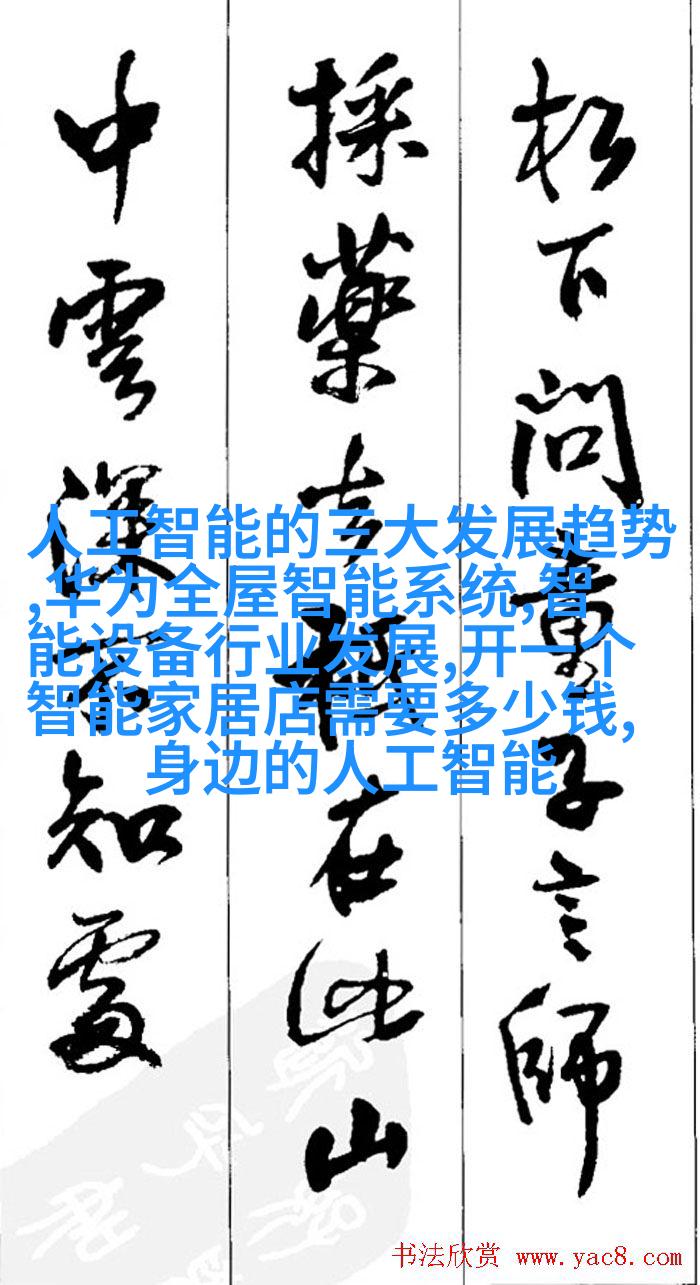 松下问童子言師
採薬去祇在此山
中雲深不知處
人工智能的三大发展趋势
,华为全屋智能系统,智
能设备行业发展,开一个
智能家居店需要多少钱,
身边的人工智能
书法欣赏 www.yac8.com